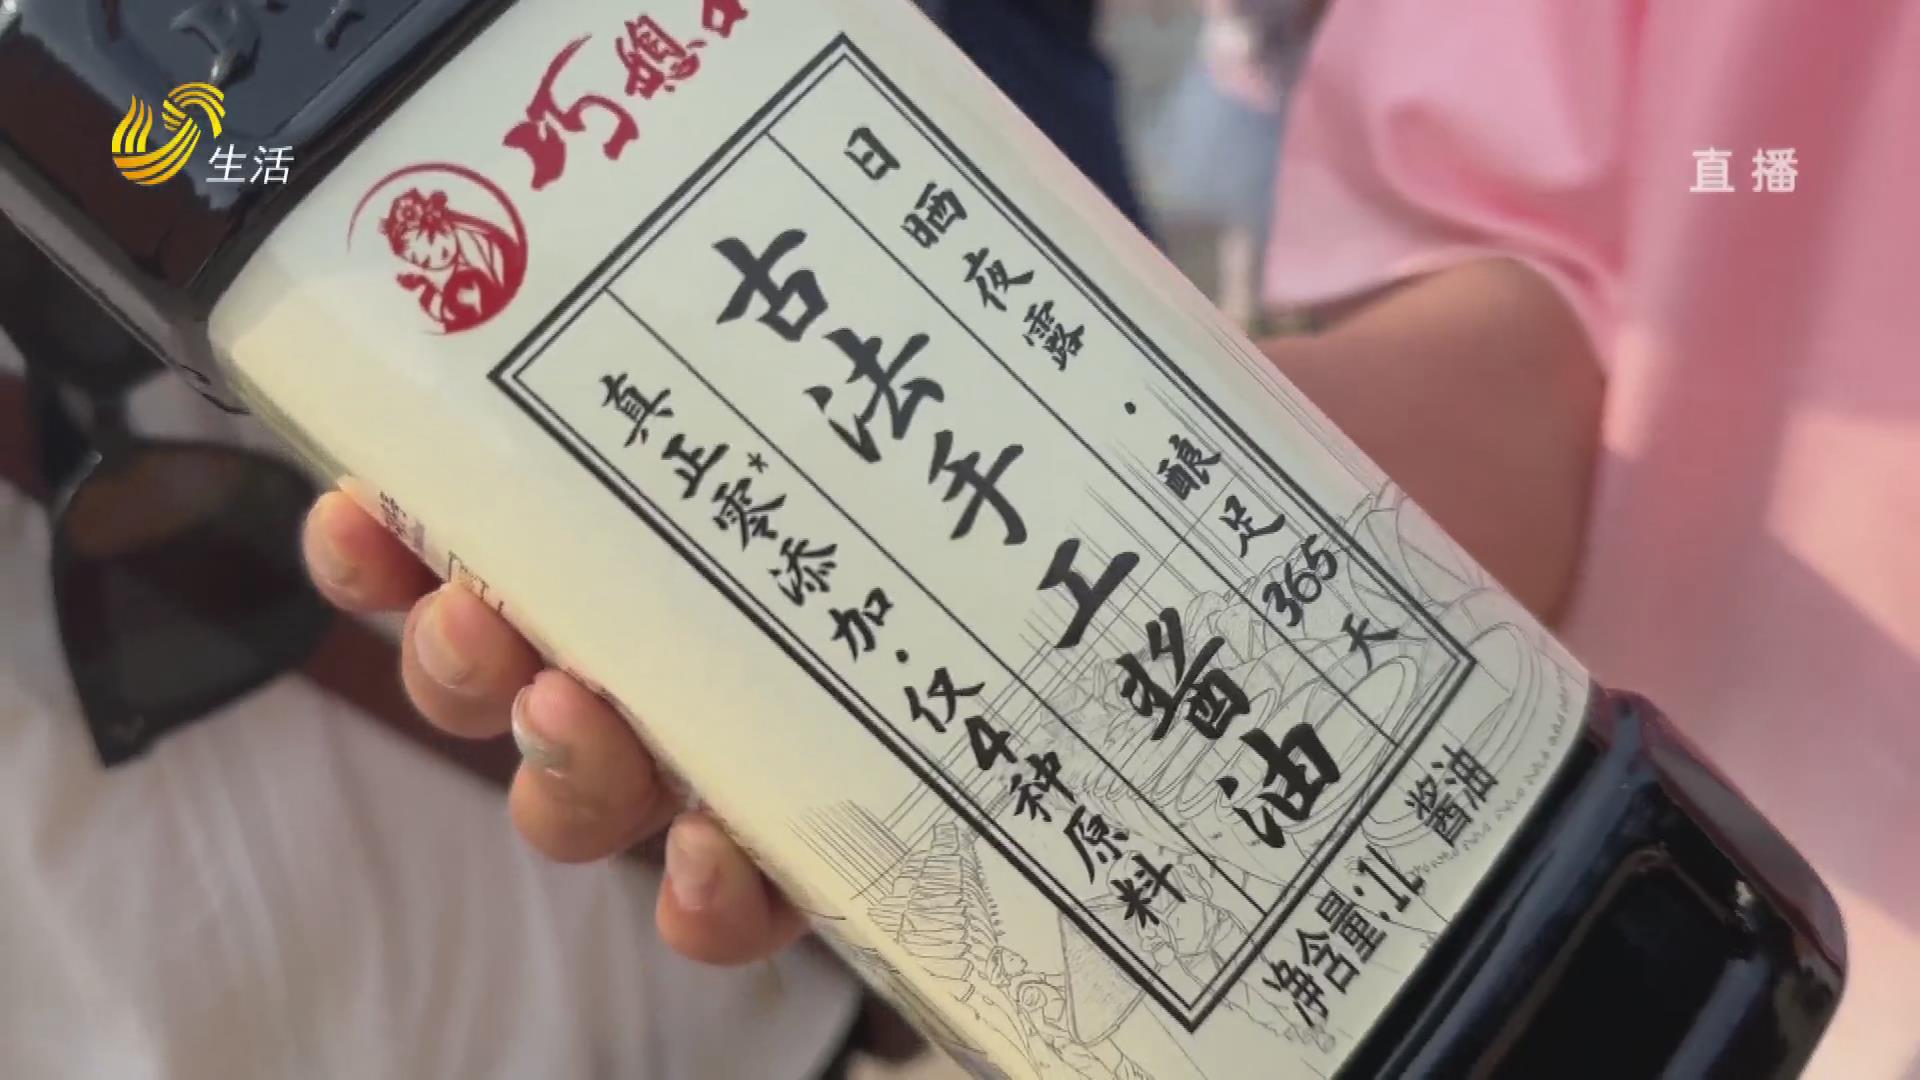 生活
直播
巧媳
日晒夜露·酿足365天
古法手工酱油
真正零*添加·仅4种原料
酱油
净含量:1L